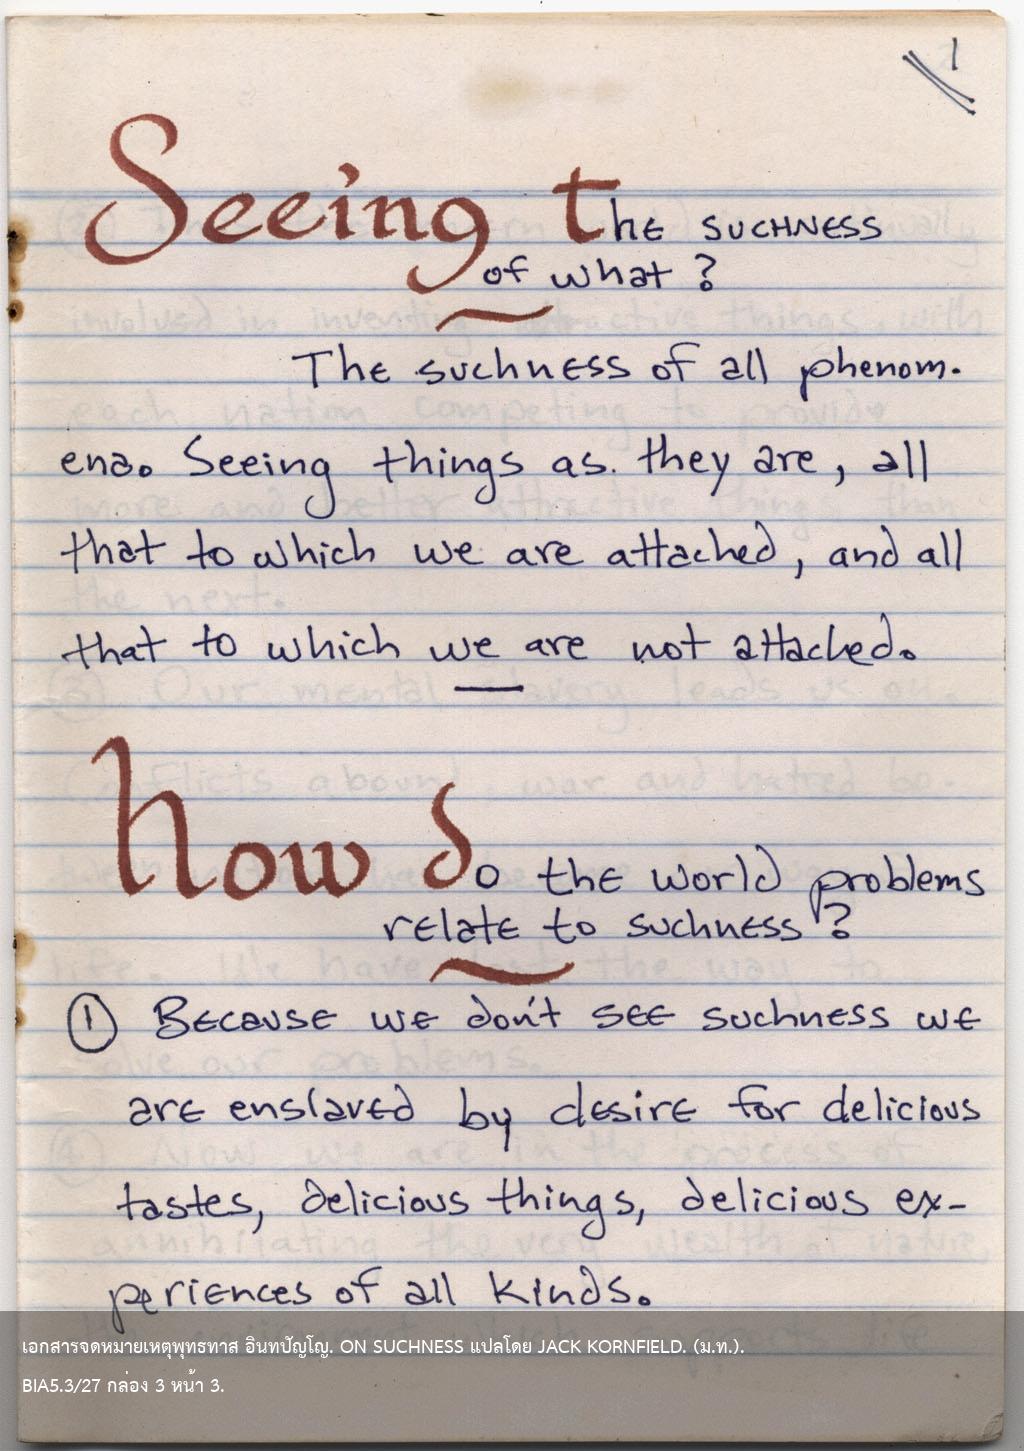 1
Seeing the suchness
of what?
The suchness of all phenom.
ena. Seeing things as. they are, all
that to which we are attached, and all
that to which we are not attached.
How do the world problems
relate to suchness?
① Because we don't see suchness we
are enslaved by desire for delicious
tastes, delicious things, delicious ex-
periences of all kinds.
เอกสารจดหมายเหตุพุทธทาส อินทปัญโญ. ON SUCHNESS แปลโดย JACK KORNFIELD. (ม.ท.).
BIA5.3/27 กล่อง 3 หน้า 3.